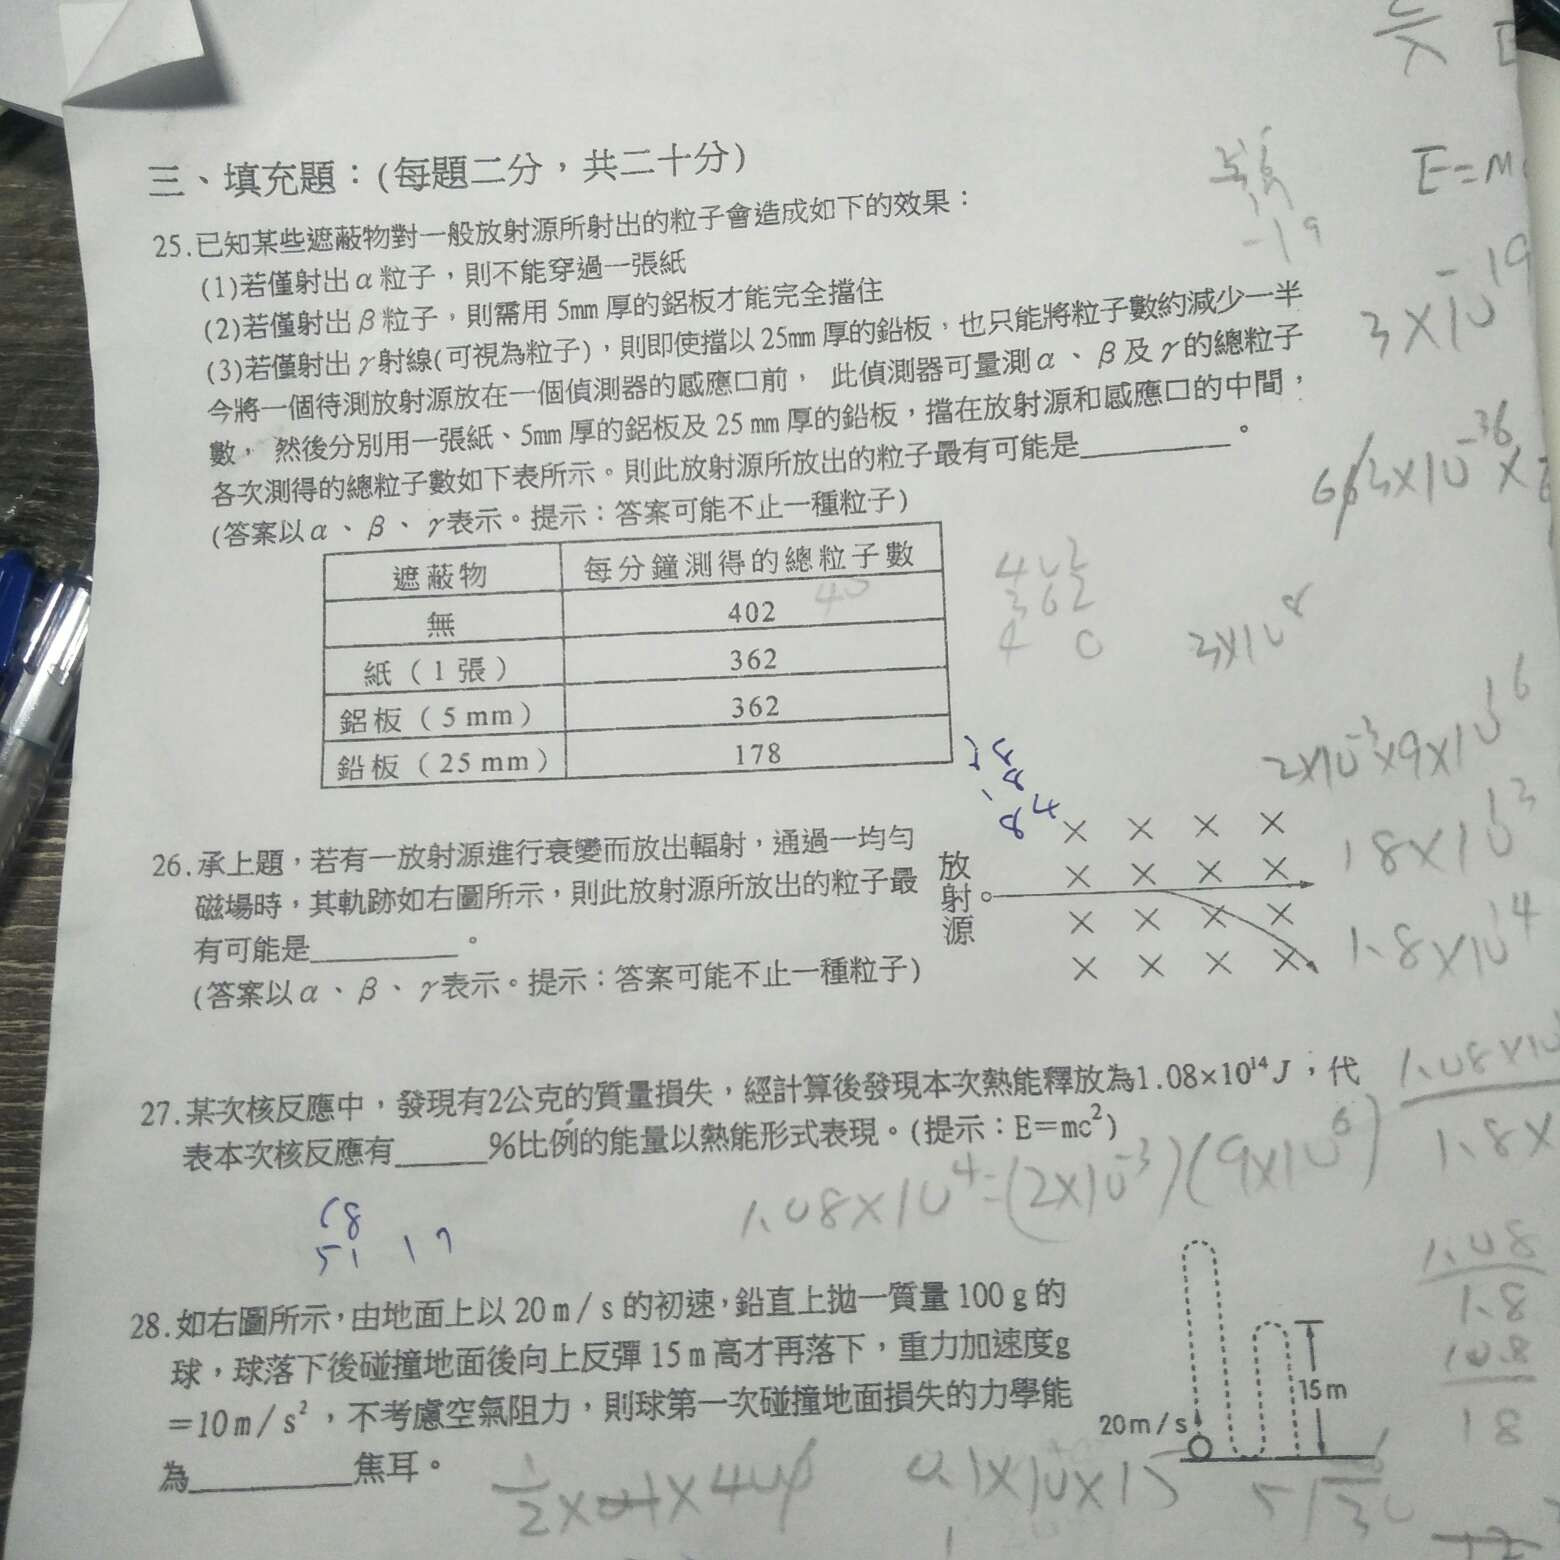 三、填充題：(每題二分，共二十分)
25.已知某些遮蔽物對一般放射源所射出的粒子會造成如下的效果：
(1)若僅射出α粒子，則不能穿過一張紙
(2)若僅射出β粒子，則需用 5mm 厚的鋁板才能完全擋住
(3)若僅射出γ射線(可視為粒子)，則即使擋以 25mm 厚的鉛板，也只能將粒子數約減少一半
今將一個待測放射源放在一個偵測器的感應口前， 此偵測器可量測α、β及γ的總粒子
數， 然後分別用一張紙、5mm 厚的鋁板及 25 mm 厚的鉛板，擋在放射源和感應口的中間，
各次測得的總粒子數如下表所示。則此放射源所放出的粒子最有可能是________。
(答案以α、β、γ表示。提示：答案可能不止一種粒子)
遮蔽物 每分鐘測得的總粒子數
無 402
紙（1 張） 362
鋁板（5 mm） 362
鉛板（25 mm） 178
40
402
362
4 0
3×10⁸
E=m
-19
3×10⁻¹⁹
2×10⁻³×9×10¹⁶
18×10¹³
1.8×10¹⁴
26.承上題，若有一放射源進行衰變而放出輻射，通過一均勻
磁場時，其軌跡如右圖所示，則此放射源所放出的粒子最
有可能是________。
(答案以α、β、γ表示。提示：答案可能不止一種粒子)
放射源
× × × ×
× × × ×
× × × ×
× × × ×
27.某次核反應中，發現有2公克的質量損失，經計算後發現本次熱能釋放為1.08×10¹⁴J；代
表本次核反應有_____%比例的能量以熱能形式表現。(提示：E＝mc²)
1.08×10
1.8×
1.08×10⁴=(2×10⁻³)(9×10⁶)
68
51 17
1.08
1.8
10.8
18
28.如右圖所示，由地面上以 20 m / s 的初速，鉛直上拋一質量 100 g 的
球，球落下後碰撞地面後向上反彈 15 m 高才再落下，重力加速度g
＝10 m / s²，不考慮空氣阻力，則球第一次碰撞地面損失的力學能
為_________焦耳。
15m
20m / s
0.1×10×15